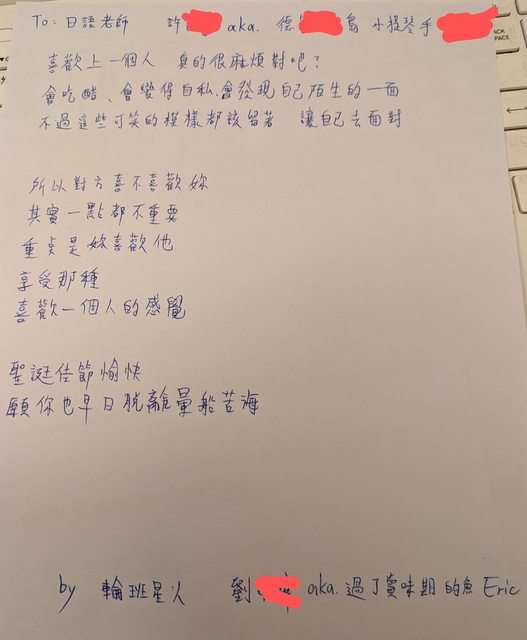 To: 日語老師 許 aka. 德 島 小提琴手
喜歡上一個人 真的很麻煩對吧?
會吃醋、會變得自私、會發現自己陌生的一面
不過這些可笑的模樣都該留著 讓自己去面對
所以對方喜不喜歡妳
其實一點都不重要
重點是妳喜歡他
享受那種
喜歡一個人的感覺
聖誕佳節愉快
願你也早日脫離暈船苦海
by 輪班星人 劉 aka. 過了賞味期的魚 Eric